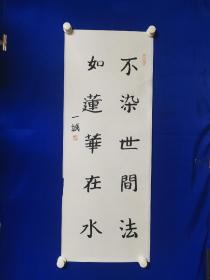 不染世間法
如蓮華在水
一誠